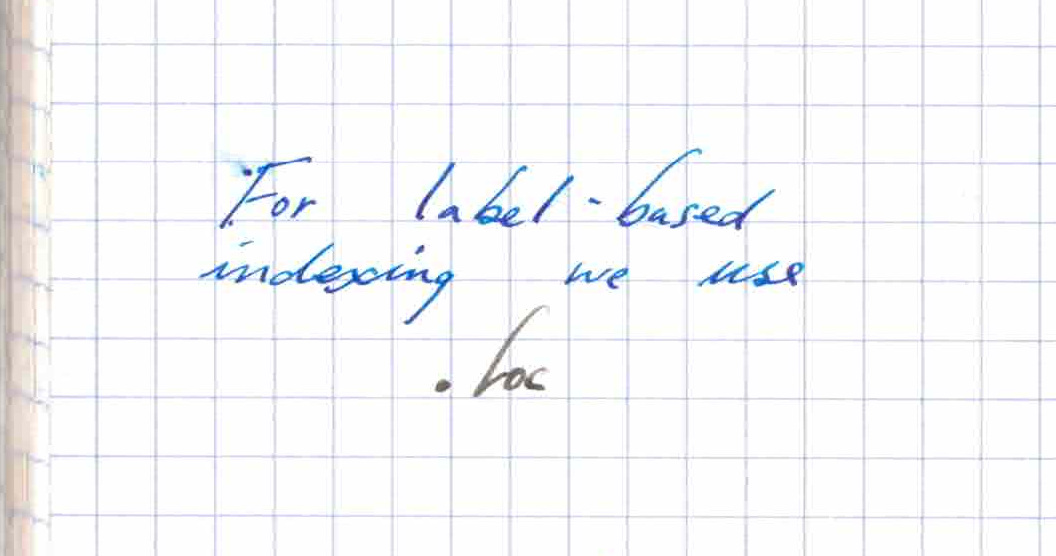 For label-based
indexing we use
.loc